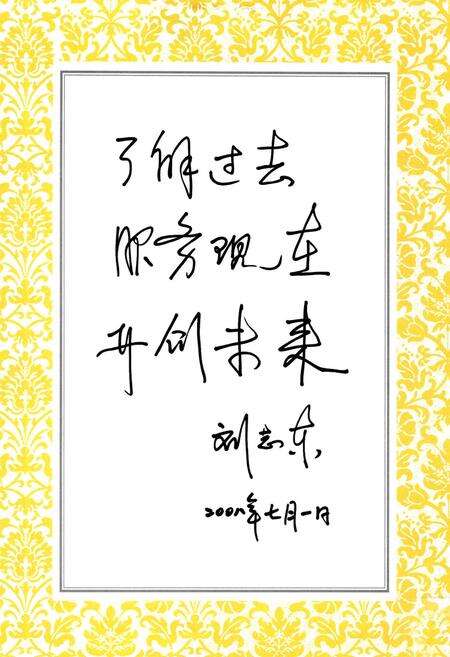 了解过去
服务现在
开创未来
刘志东
200八年七月一日